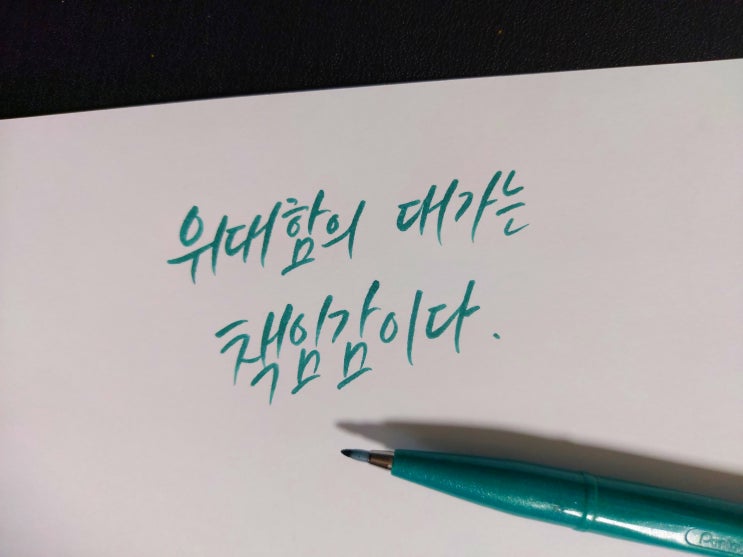 위대함의 대가는
책임감이다.